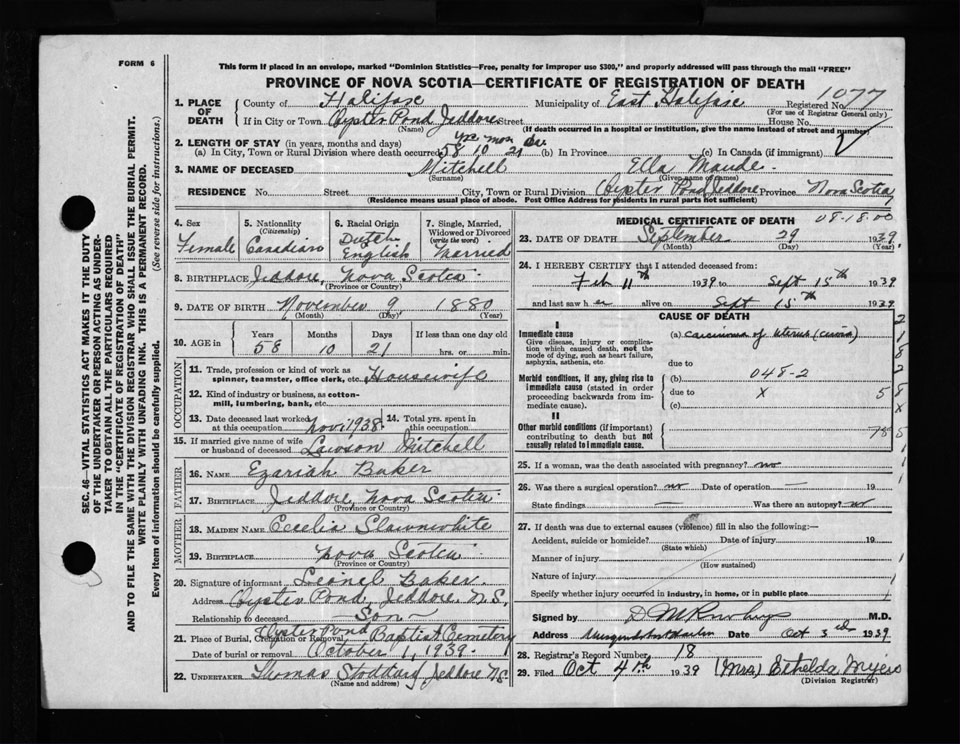 FORM 6
This form if placed in an envelope, marked "Dominion Statistics—Free, penalty for improper use $300," and properly addressed will pass through the mail "FREE"
PROVINCE OF NOVA SCOTIA—CERTIFICATE OF REGISTRATION OF DEATH
1. PLACE OF DEATH County of Halifax Municipality of East Halifax Registered No. 1077
(For use of Registrar General only)
If in City or Town Oyster Pond Jeddore Street House No.
(Name) (If death occurred in a hospital or institution, give the name instead of street and number)
2. LENGTH OF STAY (in years, months and days) Yrs mon da
(a) In City, Town or Rural Division where death occurred 58 10 21 (b) In Province (c) In Canada (if immigrant)
3. NAME OF DECEASED Mitchell Ella Maude.
(Surname) (Given name or names)
RESIDENCE No. Street City, Town or Rural Division Oyster Pond Jeddore Province Nova Scotia
(Residence means usual place of abode. Post Office Address for residents in rural parts not sufficient)
4. Sex Female
5. Nationality (Citizenship) Canadian
6. Racial Origin Dutch English
7. Single, Married, Widowed or Divorced (write the word) Married
8. BIRTHPLACE Jeddore, Nova Scotia
(Province or Country)
9. DATE OF BIRTH November 9, 1880
(Month) (Day) (Year)
10. AGE in Years 58 Months 10 Days 21 If less than one day old hrs. or min.
OCCUPATION
11. Trade, profession or kind of work as spinner, teamster, office clerk, etc. Housewife
12. Kind of industry or business, as cotton-mill, lumbering, bank, etc.
13. Date deceased last worked at this occupation Nov 1938 14. Total yrs. spent in this occupation
15. If married give name of wife or husband of deceased Lawson Mitchell
FATHER
16. NAME Ezariah Baker
17. BIRTHPLACE Jeddore, Nova Scotia
(Province or Country)
MOTHER
18. MAIDEN NAME Cecelia Slawnwhite
19. BIRTHPLACE Nova Scotia
(Province or Country)
20. Signature of informant Lionel Baker.
Address Oyster Pond, Jeddore, N.S.
Relationship to deceased Son
21. Place of Burial, Cremation or Removal Oyster Pond Baptist Cemetery
Date of burial or removal October 1, 1939.
22. UNDERTAKER Thomas Stoddard Jeddore N.S.
(Name and address)
MEDICAL CERTIFICATE OF DEATH 08-18-00
23. DATE OF DEATH September 29 1939.
(Month) (Day) (Year)
24. I HEREBY CERTIFY that I attended deceased from:
Feb 11th 1939 to Sept 15th 1939
and last saw her alive on Sept 15th 1939
CAUSE OF DEATH
I
Immediate cause
Give disease, injury or complication which caused death, not the mode of dying, such as heart failure, asphyxia, asthenia, etc.
(a) Carcinoma of Uterus (Cervix)
due to
Morbid conditions, if any, giving rise to immediate cause (stated in order proceeding backwards from immediate cause).
(b) 048-2
due to x 5
(c)
II
Other morbid conditions (if important) contributing to death but not causally related to immediate cause.
78
25. If a woman, was the death associated with pregnancy? no
26. Was there a surgical operation? no Date of operation — 19
State findings — Was there an autopsy? no
27. If death was due to external causes (violence) fill in also the following:—
Accident, suicide or homicide? Date of injury 19
(State which)
Manner of injury
(How sustained)
Nature of injury
Specify whether injury occurred in industry, in home, or in public place
Signed by M.D.
Address Date Oct 3rd 1939
28. Registrar's Record Number 18
29. Filed Oct 4th 1939 (Mrs) Ethelda Myers
(Division Registrar)
SEC. 46—VITAL STATISTICS ACT MAKES IT THE DUTY
OF THE UNDERTAKER OR PERSON ACTING AS UNDER-
TAKER TO OBTAIN ALL THE PARTICULARS REQUIRED
IN THE "CERTIFICATE OF REGISTRATION OF DEATH"
AND TO FILE THE SAME WITH THE DIVISION REGISTRAR WHO SHALL ISSUE THE BURIAL PERMIT.
WRITE PLAINLY WITH UNFADING INK. THIS IS A PERMANENT RECORD.
Every item of information should be carefully supplied. (See reverse side for instructions.)